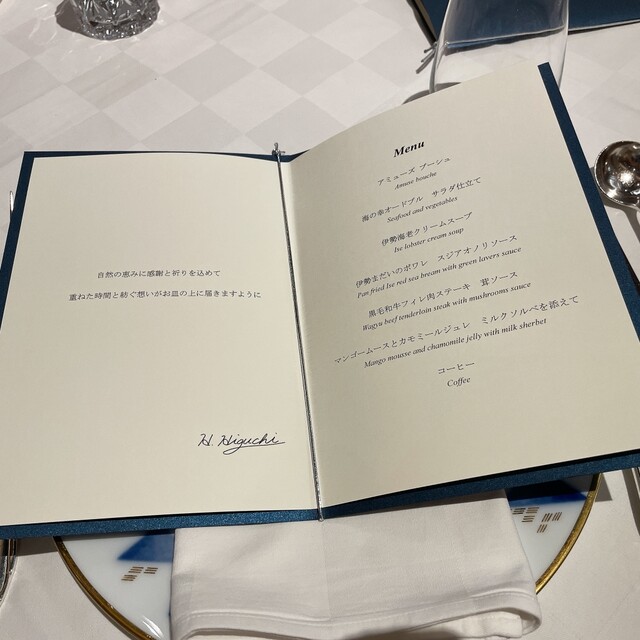 自然の恵みに感謝と祈りを込めて
重ねた時間と紡ぐ想いがお皿の上に届きますように
H. Higuchi
Menu
アミューズ ブーシュ
Amuse bouche
海の幸オードブル　サラダ仕立て
Seafood and vegetables
伊勢海老クリームスープ
Ise lobster cream soup
伊勢まだいのポワレ　スジアオノリソース
Pan fried Ise red sea bream with green lavers sauce
黒毛和牛フィレ肉ステーキ　茸ソース
Wagyu beef tenderloin steak with mushrooms sauce
マンゴームースとカモミールジュレ　ミルクソルベを添えて
Mango mousse and chamomile jelly with milk sherbet
コーヒー
Coffee